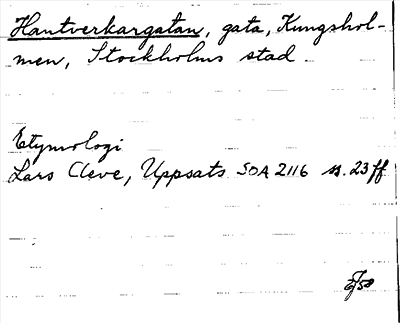 Hantverkargatan, gata, Kungshol-
men, Stockholms stad
Etymologi
Lars Cleve, Uppsats SOA 2116 s. 23 ff